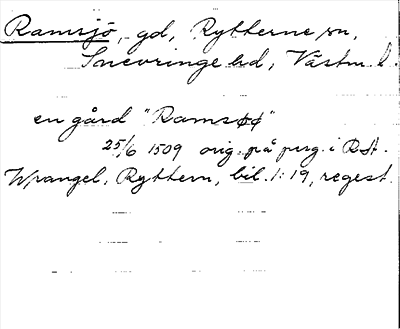 Ramsjö, gd, Rytterne sn,
Snevringe hd, Västm. l.
en gård "Ramsøø"
25/6 1509 orig. på perg. i RA.
Wrangel, Ryttern, bil. 1:19, regest.